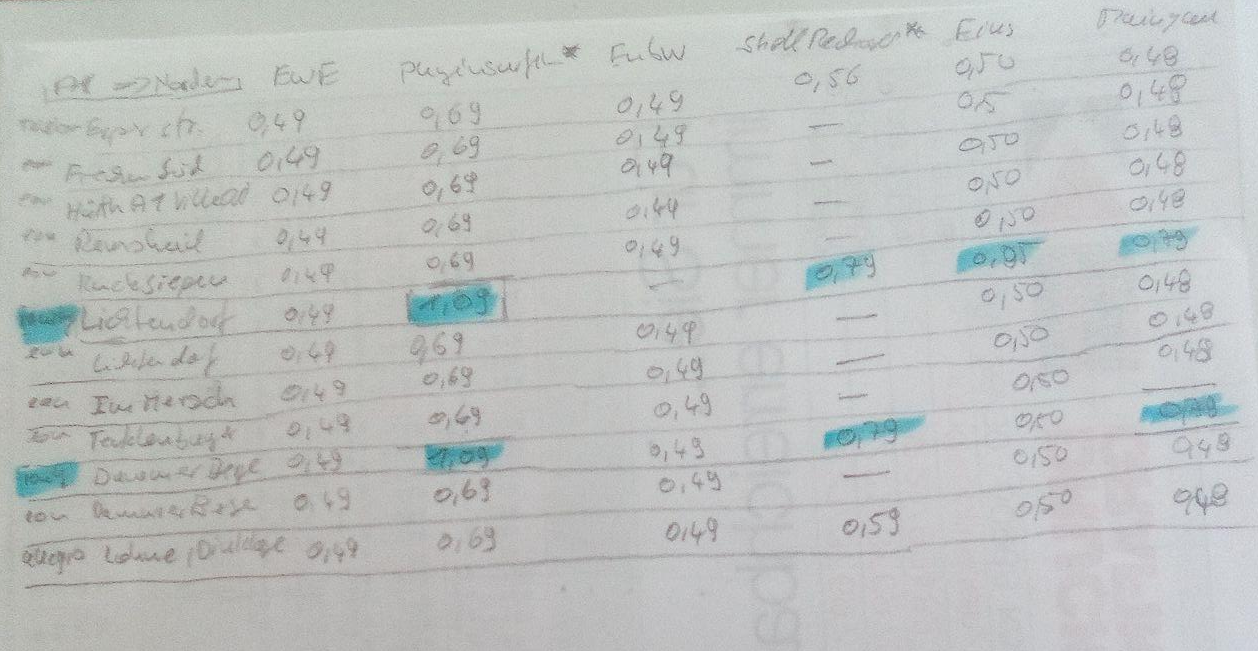 A1 => Norden EWE Pluginsurfen* EnBW Shell Recharge* Eins Maingau
str. 0,49 0,69 0,49 0,56 0,50 0,48
Frechen Süd 0,49 0,69 0,49 — 0,5 0,48
Hürth A1 Ville 0,49 0,69 0,49 — 0,50 0,48
eon Remscheid 0,49 0,69 0,44 — 0,50 0,48
eon 0,49 0,69 0,49 — 0,50 0,48
Lichtendorf 0,49 1,09 — 0,79 0,95 0,79
eon Lichtendorf 0,49 0,69 0,49 — 0,50 0,48
eon Im Mersch 0,49 0,69 0,49 — 0,50 0,48
eon Tecklenburg* 0,49 0,69 0,49 — 0,50 0,48
Dammer Berge 0,49 1,09 0,49 0,79 0,50 0,79
eon Dammer Berge 0,49 0,69 0,49 — 0,50 0,48
allego Lohne, Dinklage 0,49 0,69 0,49 0,59 0,50 0,48